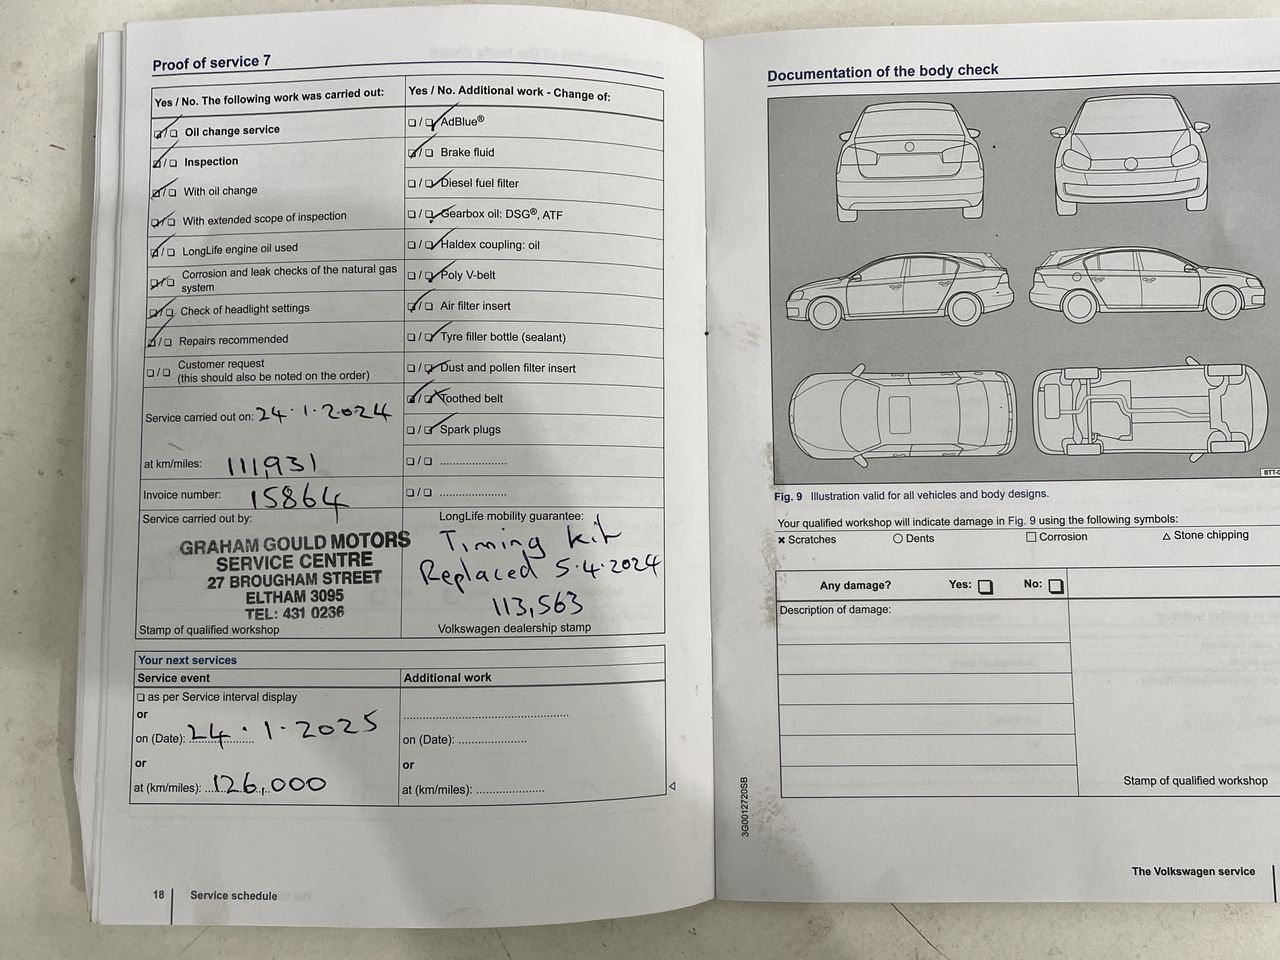 Proof of service 7
Yes / No. The following work was carried out:
❑/❑ Oil change service
❑/❑ Inspection
❑/❑ With oil change
❑/❑ With extended scope of inspection
❑/❑ LongLife engine oil used
❑/❑ Corrosion and leak checks of the natural gas
system
❑/❑ Check of headlight settings
❑/❑ Repairs recommended
❑/❑ Customer request
(this should also be noted on the order)
Service carried out on: 24.1.2024
at km/miles: 111,931
Invoice number: 15864
Service carried out by:
GRAHAM GOULD MOTORS
SERVICE CENTRE
27 BROUGHAM STREET
ELTHAM 3095
TEL: 431 0236
Stamp of qualified workshop
Yes / No. Additional work - Change of:
❑/❑ AdBlue®
❑/❑ Brake fluid
❑/❑ Diesel fuel filter
❑/❑ Gearbox oil: DSG®, ATF
❑/❑ Haldex coupling: oil
❑/❑ Poly V-belt
❑/❑ Air filter insert
❑/❑ Tyre filler bottle (sealant)
❑/❑ Dust and pollen filter insert
❑/❑ Toothed belt
❑/❑ Spark plugs
❑/❑ ......................
❑/❑ ......................
LongLife mobility guarantee:
Timing kit
Replaced 5.4.2024
113,563
Volkswagen dealership stamp
Your next services
Service event
❑ as per Service interval display
or
on (Date): 24.1.2025
or
at (km/miles): 126,000
Additional work
......................
on (Date): ......................
or
at (km/miles): ......................
18 Service schedule
Documentation of the body check
BTT-0
Fig. 9 Illustration valid for all vehicles and body designs.
Your qualified workshop will indicate damage in Fig. 9 using the following symbols:
× Scratches ○ Dents □ Corrosion △ Stone chipping
Any damage? Yes: ❑ No: ❑
Description of damage:
Stamp of qualified workshop
3G0012720SB
The Volkswagen service